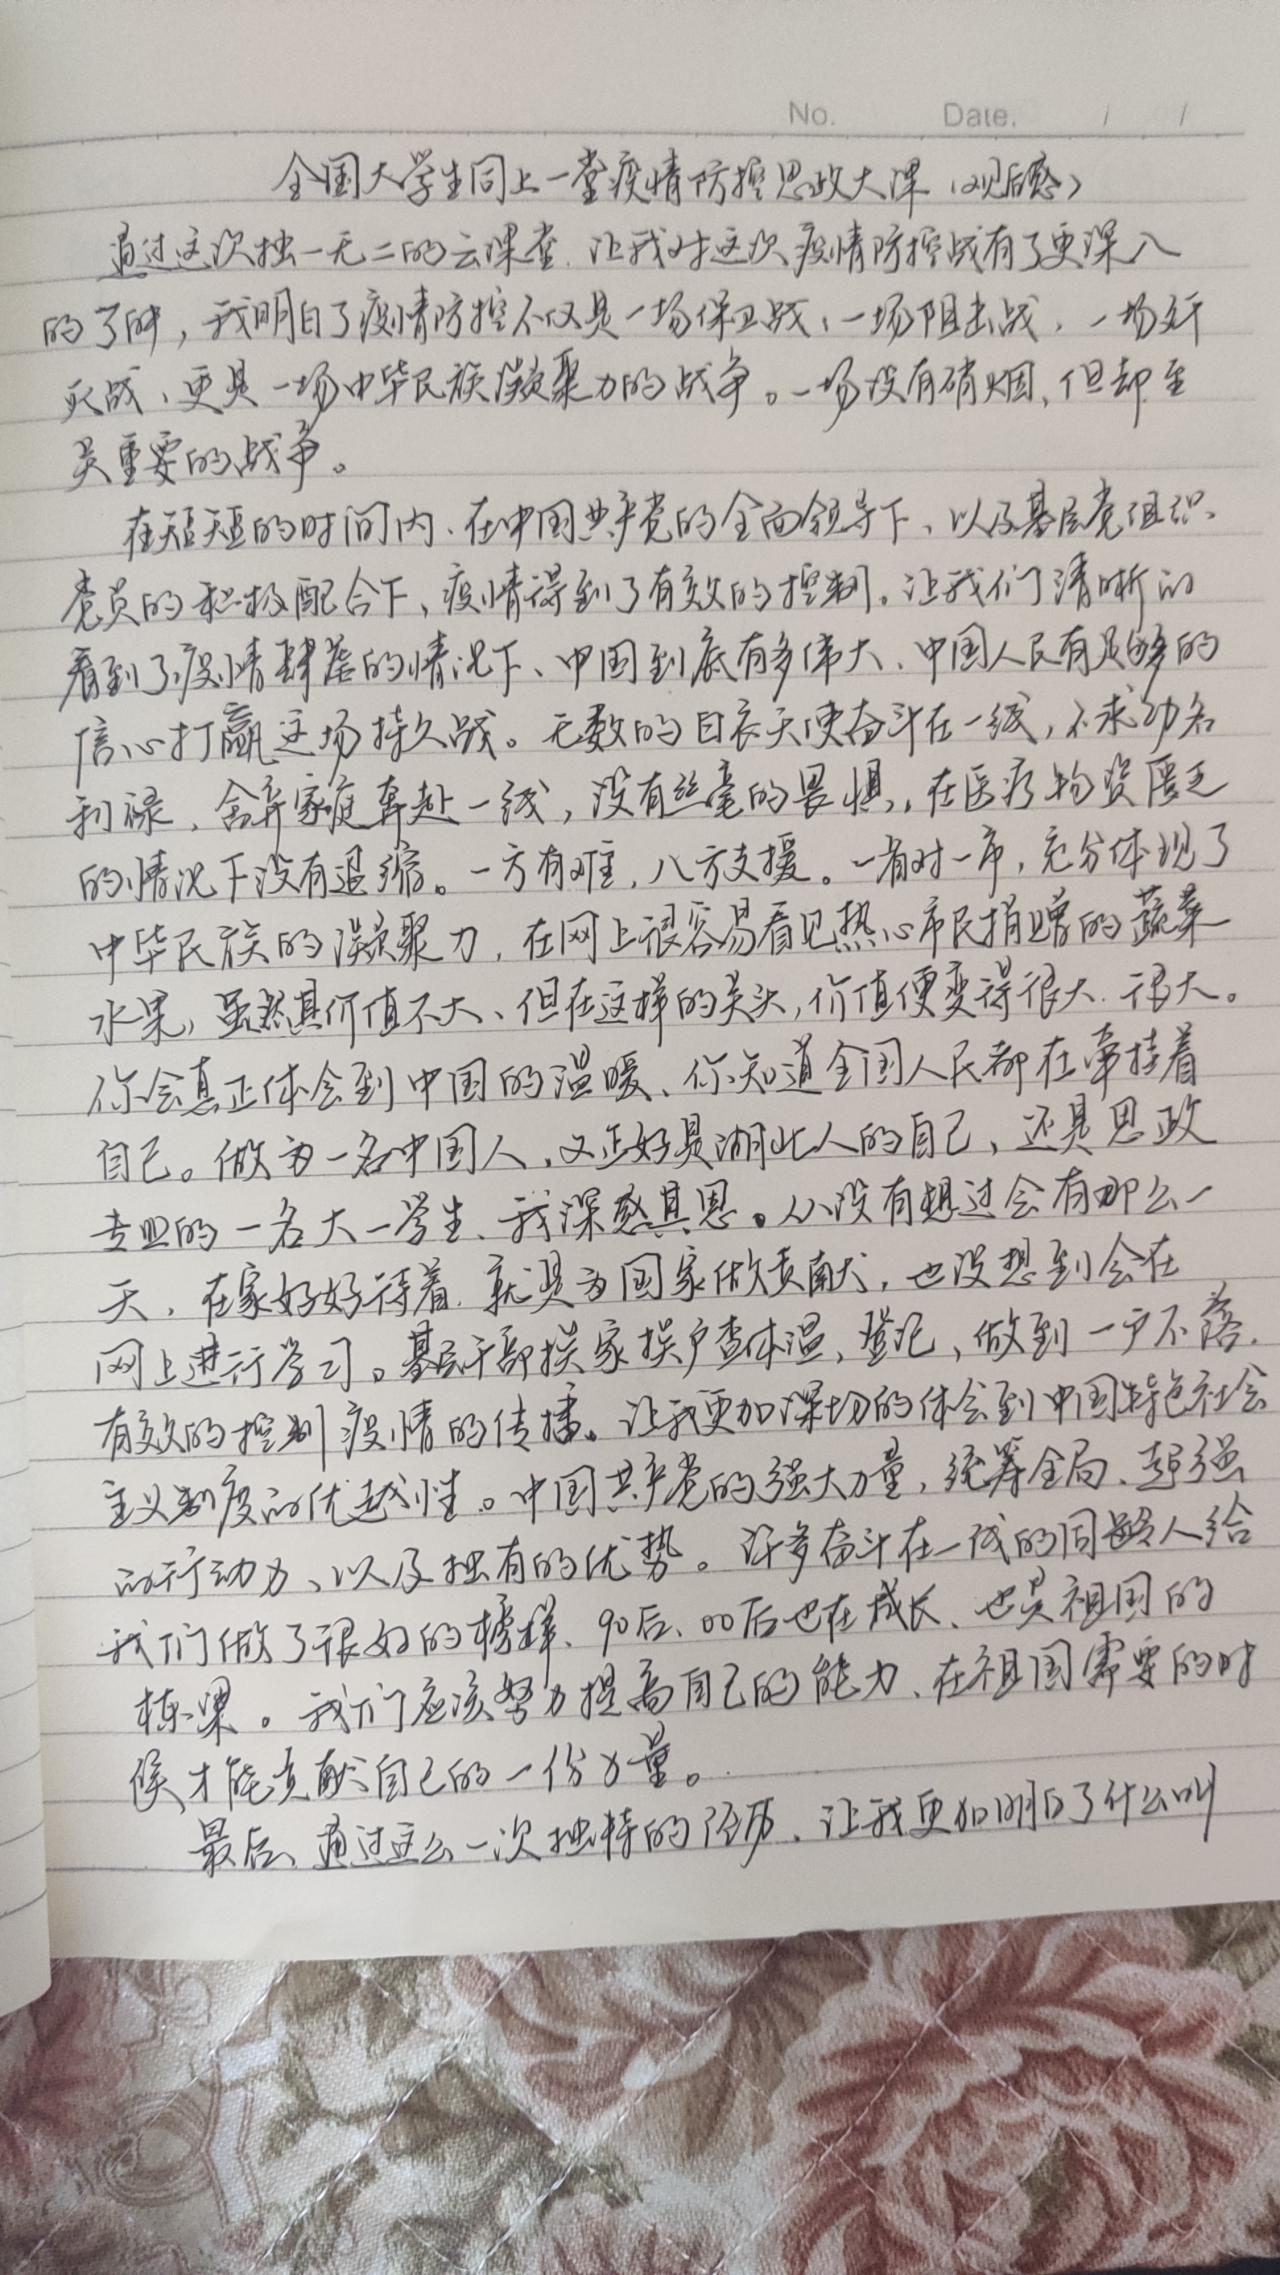 No.    Date.    /    /
全国大学生同上一堂疫情防控思政大课(观后感)
通过这次独一无二的云课堂,让我对这次疫情防控战有了更深入
的了解,我明白了疫情防控不仅是一场保卫战、一场阻击战,一场歼
灭战,更是一场中华民族凝聚力的战争。一场没有硝烟,但却至
关重要的战争。
在短短的时间内,在中国共产党的全面领导下,以及基层党组织、
党员的积极配合下,疫情得到了有效的控制。让我们清晰的
看到了疫情肆虐的情况下、中国到底有多伟大、中国人民有足够的
信心打赢这场持久战。无数的白衣天使奋斗在一线,不求功名
利禄,舍弃家庭奔赴一线,没有丝毫的畏惧,在医疗物资匮乏
的情况下没有退缩。一方有难,八方支援。一省对一市,充分体现了
中华民族的凝聚力,在网上很容易看见热心市民捐赠的蔬菜
水果,虽然其价值不大、但在这样的关头,价值便变得很大.很大。
你会真正体会到中国的温暖、你知道全国人民都在牵挂着
自己。做为一名中国人,又正好是湖北人的自己,还是思政
专业的一名大一学生、我深感其恩。从没有想过会有那么一
天,在家好好待着,就是为国家做贡献,也没想到会在
网上进行学习。基层干部挨家挨户查体温,登记,做到一户不落.
有效的控制疫情的传播。让我更加深切的体会到中国特色社会
主义制度的优越性。中国共产党的强大力量,统筹全局、超强
的行动力、以及独有的优势。许多奋斗在一线的同龄人给
我们做了很好的榜样、90后、00后也在成长、也是祖国的
栋梁。我们应该努力提高自己的能力、在祖国需要的时
候才能贡献自己的一份力量。
最后、通过这么一次独特的经历、让我更加明白了什么叫